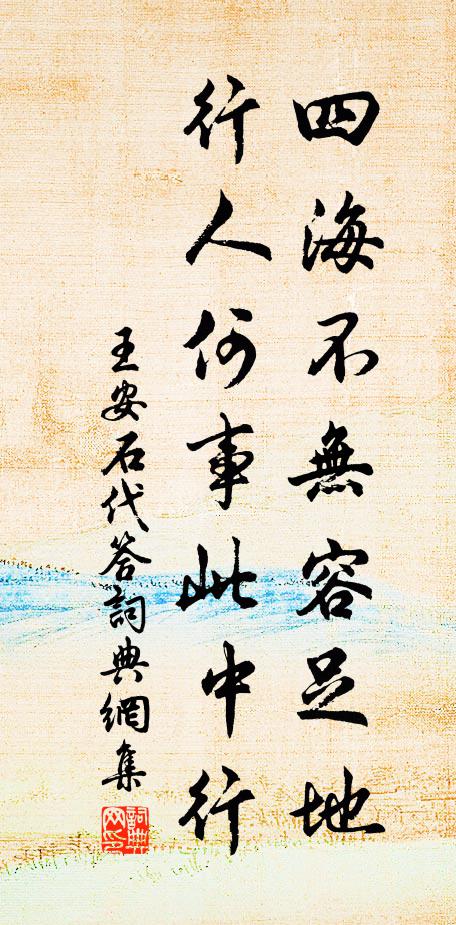 四海不無容足地
行人何事此中行
王安石代答詞典網集
詞典網印